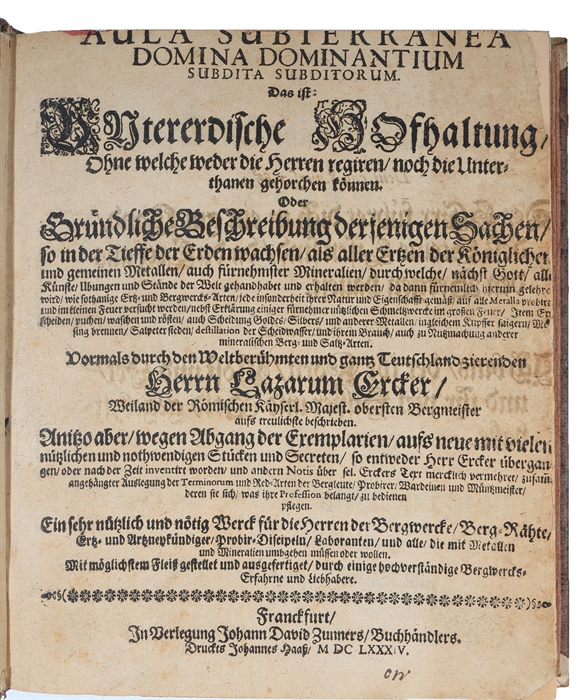 AULA SUBTERRANEA
DOMINA DOMINANTIUM
SUBDITA SUBDITORUM.
Das ist:
Untererdische Hofhaltung/
Ohne welche weder die Herren regiren/ noch die Unter-
thanen gehorchen können.
Oder
Gründliche Beschreibung derjenigen Sachen/
so in der Tieffe der Erden wachsen/ als aller Ertzen der Königlichen
und gemeinen Metallen/ auch fürnehmster Mineralien/ durch welche/ nächst Gott/ alle
Künste/ Ubungen und Stände der Welt gehandhabet und erhalten werden/ da dann fürnemlich hierinn gelehret
wird/ wie sothanige Ertz- und Bergwercks-Arten/ jede insonderheit ihrer Natur und Eigenschafft gemäß/ auf alle Metalla probirt
und im kleinen Feuer versucht werden/ nebst Erklärung einiger fürnehmer nützlichen Schmeltzwercke im grossen Feuer/ Item Er
scheiden/ puchen/ waschen und rösten/ auch Scheidung Goldes/ Silbers/ und anderer Metallen/ ingleichem Kupffer saigern/ Mes
sing brennen/ Salpeter sieden/ destillation der Scheidwasser/ und ihrem Brauch/ auch zu Nutzmachung anderer
mineralischen Berg- und Saltz-Arten.
Vormals durch den Weltberühmten und gantz Teutschland zierenden
Herrn Lazarum Ercker/
Weiland der Römischen Käyserl. Majest. obersten Bergmeister
aufs treulichste beschrieben.
Anitzo aber/ wegen Abgang der Exemplarien/ aufs neue mit vielen
nützlichen und nothwendigen Stücken und Secreten/ so entweder Herr Ercker übergan
gen/ oder nach der Zeit inventirt worden/ und andern Notis über sel. Erckers Text mercklich vermehret/ zusamt
angehängter Auslegung der Terminorum und Red-Arten der Bergleute/ Probirer/ Wardeinen und Müntzmeister/
deren sie sich/ was ihre Profession belangt/ zu bedienen
pflegen.
Ein sehr nützlich und nötig Werck für die Herren der Bergwercke/ Berg-Rähte/
Ertz- und Artzneykündiger/ Probir-Discipeln/ Laboranten/ und alle/ die mit Metallen
und Mineralien umbgehen müssen oder wollen.
Mit möglichstem Fleiß gestellet und ausgefertiget/ durch einige hochverständige Bergwercks-
Erfahrne und Liebhabere.
Franckfurt/
In Verlegung Johann David Zunners/ Buchhändlers.
Druckts Johannes Haaß/ M DC LXXXIV.